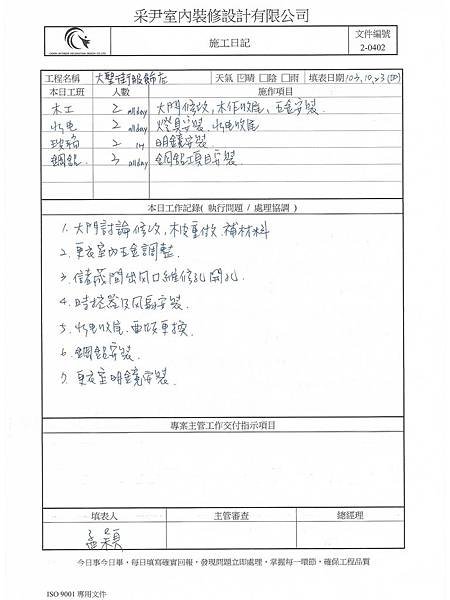 采尹室內裝修設計有限公司
施工日記
文件編號
2-0402
工程名稱 大墾街服飾店 天氣 ☑晴 □陰 □雨 填表日期 104.10.23(四)
本日工班 人數 施作項目
木工 2 allday 大門修改,木作收尾、五金安裝
水電 2 allday 燈具安裝.水電收尾
玻璃 2 1H 明鏡安裝
鋼鋁 3 allday 鋼鋁項目安裝
本日工作記錄( 執行問題 / 處理協調 )
1. 大門討論修改,木皮重做.補材料
2. 更衣室內五金調整.
3. 儲藏間出風口維修孔開孔.
4. 時控器及風扇安裝.
5. 水電收尾.面板更換.
6. 鋼鋁安裝.
7. 更衣室明鏡安裝.
專案主管工作交付指示項目
填表人 主管審查 總經理
孟穎
今日事今日畢,每日填寫確實回報,發現問題立即處理,掌握每一環節,確保工程品質
ISO 9001 專用文件